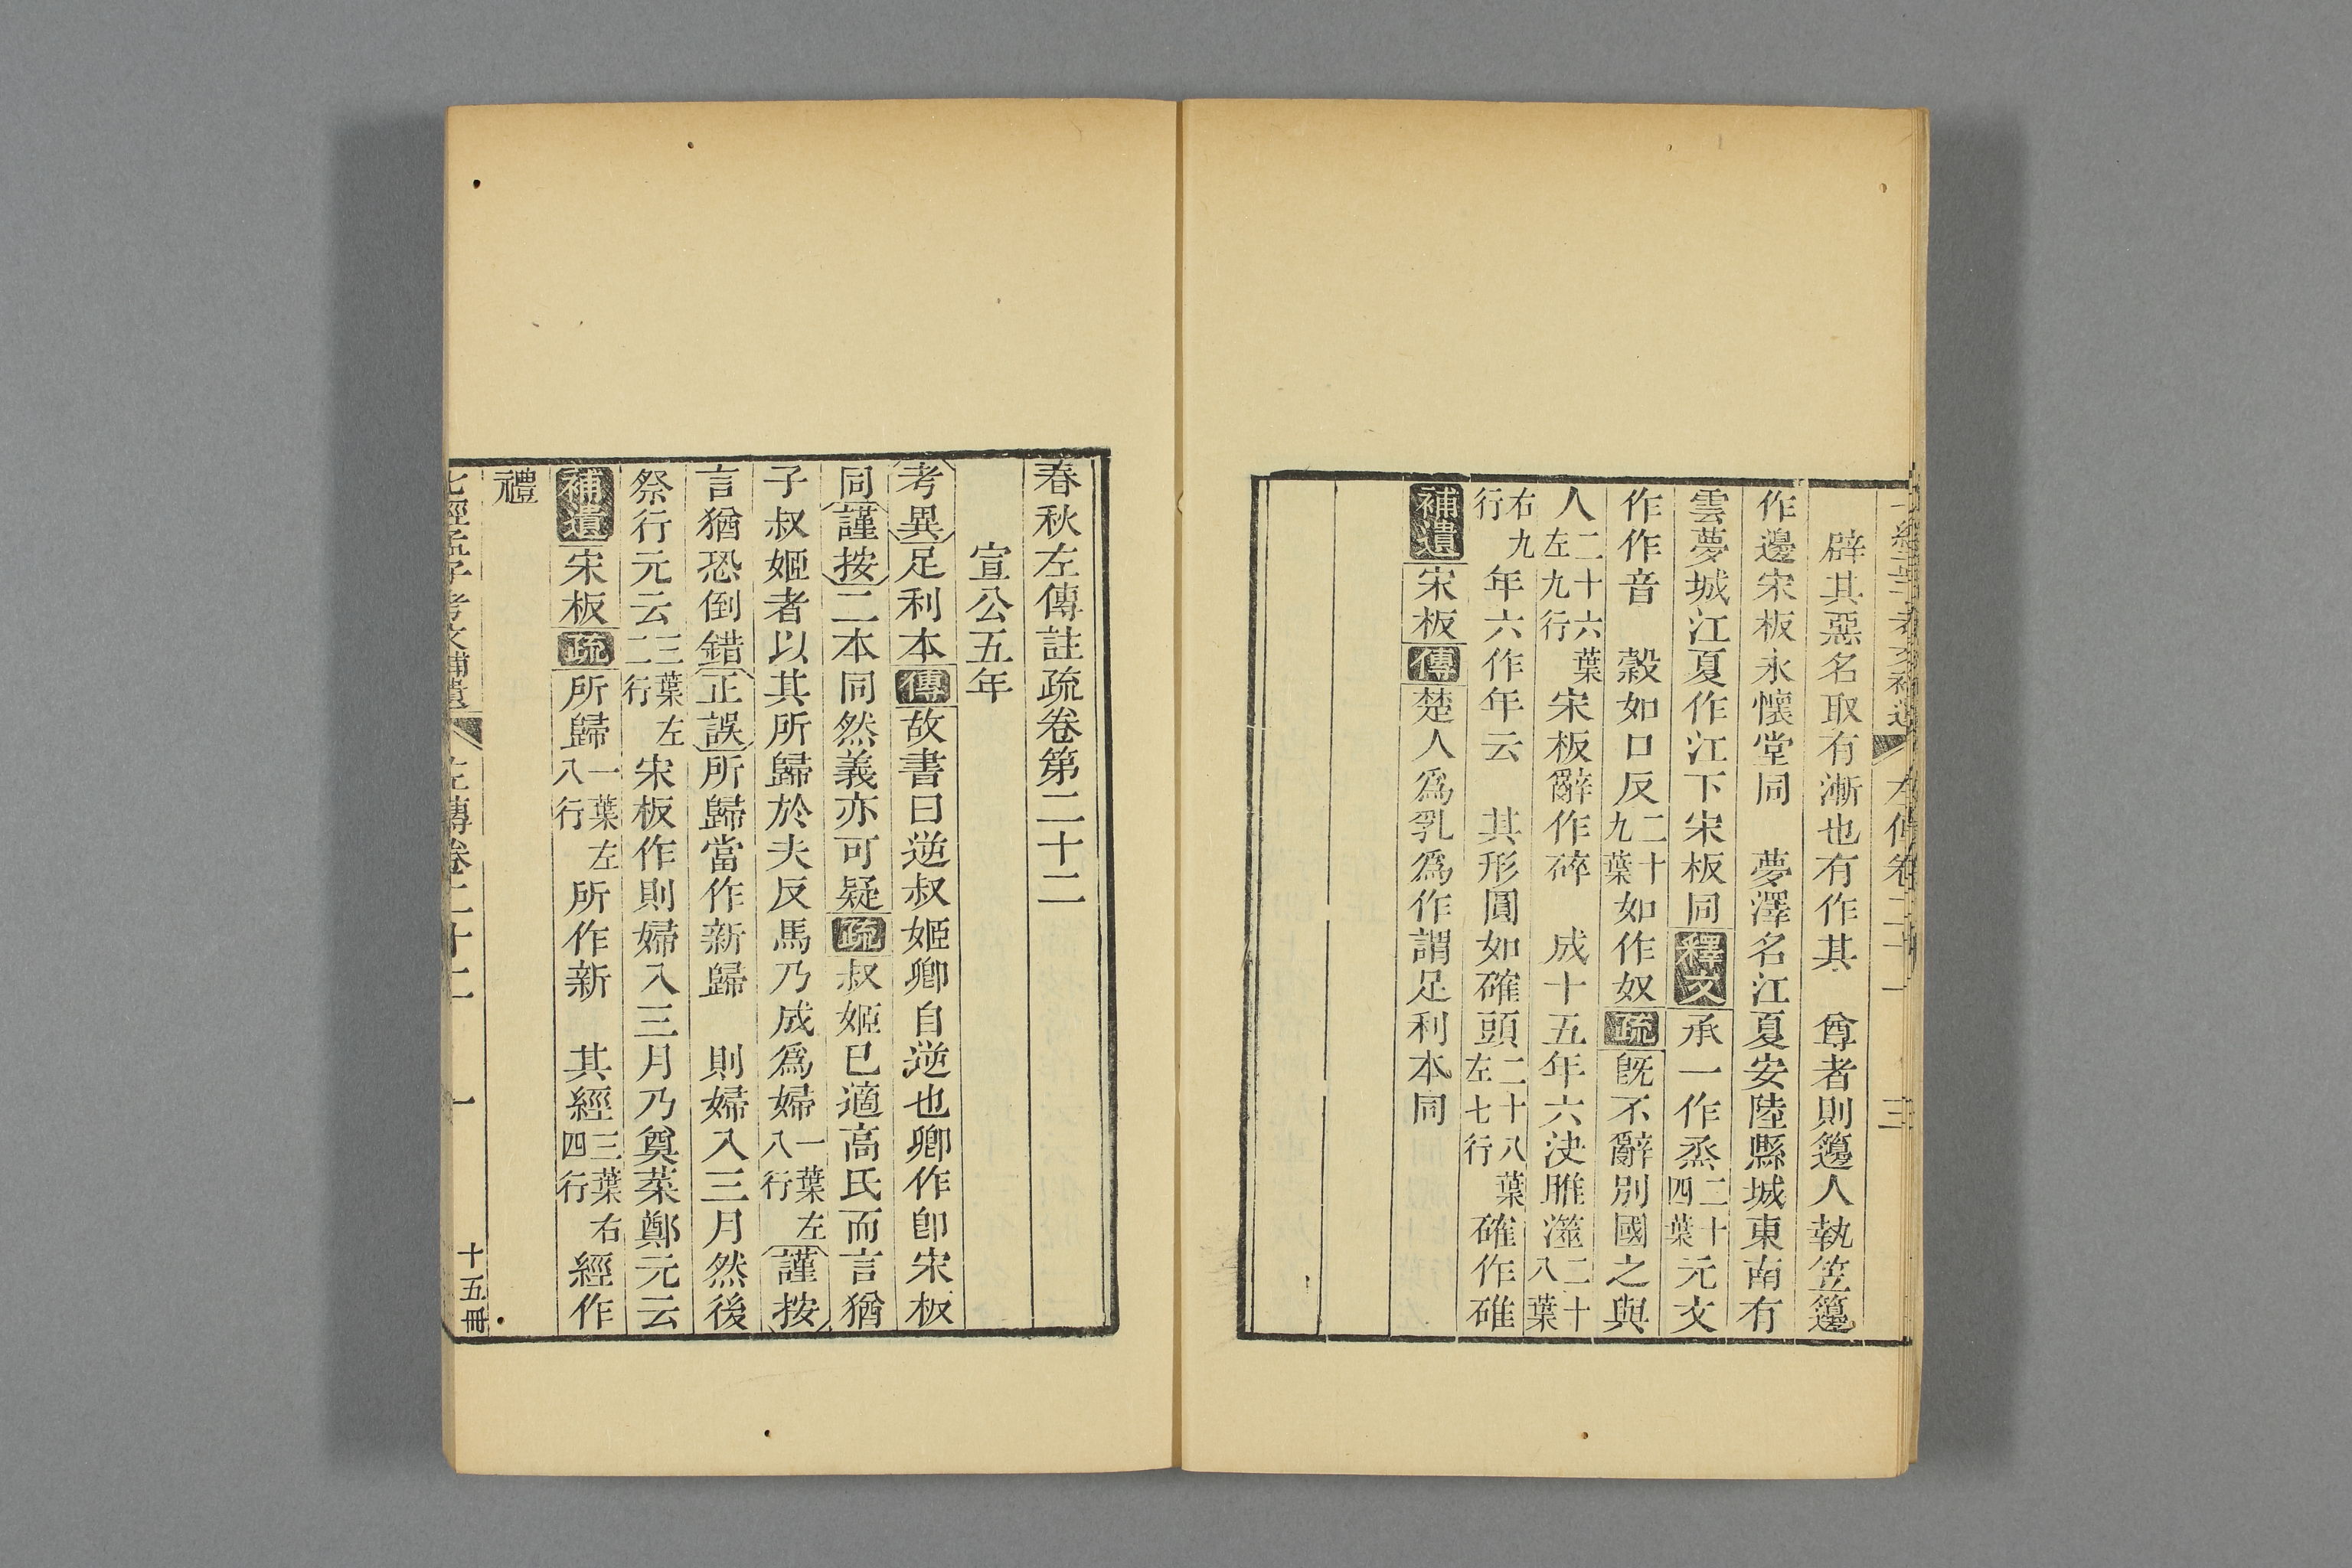 左傳卷二十一 三
辟其惡名取有漸也有作其 尊者則籩人執笠籩
作邊宋板永懷堂同 夢澤名江夏安陸縣城東南有
雲夢城江夏作江下宋板同釋文承一作烝二十四葉元文
作作音 穀如口反二十九葉如作奴疏旣不辭別國之與
人二十六葉左九行宋板辭作碎 成十五年六決睢澨二十八葉
右九行年六作年云 其形圓如確頭二十八葉左七行確作碓
補遺宋板傳楚人爲乳爲作謂足利本同
春秋左傳註疏卷第二十二
宣公五年
考異足利本傳故書曰逆叔姬卿自逆也卿作卽宋板
同謹按二本同然義亦可疑疏叔姬已適高氏而言猶
子叔姬者以其所歸於夫反馬乃成爲婦一葉左八行謹按
言猶恐倒錯正誤所歸當作新歸 則婦入三月然後
祭行元云三葉左二行宋板作則婦入三月乃奠菜鄭元云
補遺宋板疏所歸一葉左八行所作新 其經三葉右四行經作
禮
七經孟子考文補遺 左傳卷二十二 一 十五冊